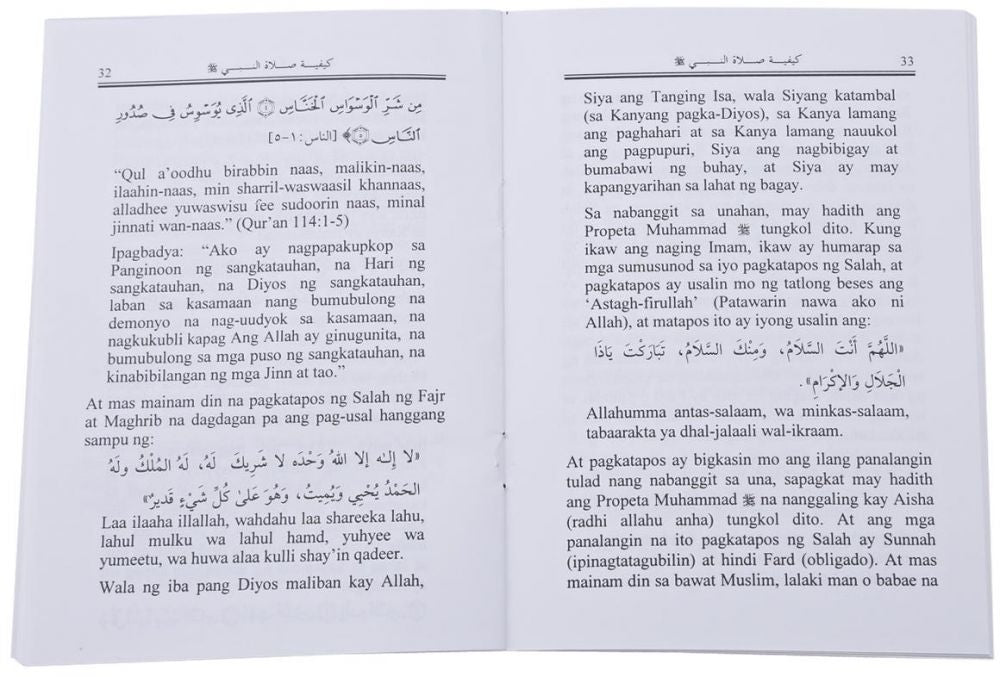 32
كيفية صلاة النبي ﷺ
مِن شَرِّ ٱلْوَسْوَاسِ ٱلْخَنَّاسِ ۝٤ ٱلَّذِى يُوَسْوِسُ فِى صُدُورِ
ٱلنَّاسِ ۝٥﴾ [الناس: ١-٥]
“Qul a’oodhu birabbin naas, malikin-naas,
ilaahin-naas, min sharril-waswaasil khannaas,
alladhee yuwaswisu fee sudoorin naas, minal
jinnati wan-naas.” (Qur’an 114:1-5)
Ipagbadya: “Ako ay nagpapakupkop sa
Panginoon ng sangkatauhan, na Hari ng
sangkatauhan, na Diyos ng sangkatauhan,
laban sa kasamaan nang bumubulong na
demonyo na nag-uudyok sa kasamaan, na
nagkukubli kapag Ang Allah ay ginugunita, na
bumubulong sa mga puso ng sangkatauhan, na
kinabibilangan ng mga Jinn at tao.”
At mas mainam din na pagkatapos ng Salah ng Fajr
at Maghrib na dagdagan pa ang pag-usal hanggang
sampu ng:
«لا إِلـٰه إلا اللهُ وَحْدَه لا شَرِيكَ لَهُ، لَهُ المُلْكُ ولَهُ
الحَمْدُ يُحْيِي وَيُمِيتُ، وَهُوَ عَلىٰ كُلِّ شَيْءٍ قَدِيرٌ»
Laa ilaaha illallah, wahdahu laa shareeka lahu,
lahul mulku wa lahul hamd, yuhyee wa
yumeetu, wa huwa alaa kulli shay’in qadeer.
Wala ng iba pang Diyos maliban kay Allah,
33
كيفية صلاة النبي ﷺ
Siya ang Tanging Isa, wala Siyang katambal
(sa Kanyang pagka-Diyos), sa Kanya lamang
ang paghahari at sa Kanya lamang nauukol
ang pagpupuri, Siya ang nagbibigay at
bumabawi ng buhay, at Siya ay may
kapangyarihan sa lahat ng bagay.
Sa nabanggit sa unahan, may hadith ang
Propeta Muhammad ﷺ tungkol dito. Kung
ikaw ang naging Imam, ikaw ay humarap sa
mga sumusunod sa iyo pagkatapos ng Salah, at
pagkatapos ay usalin mo ng tatlong beses ang
‘Astagh-firullah’ (Patawarin nawa ako ni
Allah), at matapos ito ay iyong usalin ang:
«اللَّهُمَّ أَنْتَ السَّلَامُ، وَمِنْكَ السَّلَامُ، تَبَارَكْتَ يَاذَا
الْجَلَالِ وَالإِكْرَامِ».
Allahumma antas-salaam, wa minkas-salaam,
tabaarakta ya dhal-jalaali wal-ikraam.
At pagkatapos ay bigkasin mo ang ilang panalangin
tulad nang nabanggit sa una, sapagkat may hadith
ang Propeta Muhammad ﷺ na nanggaling kay Aisha
(radhi allahu anha) tungkol dito. At ang mga
panalangin na ito pagkatapos ng Salah ay Sunnah
(ipinagtatagubilin) at hindi Fard (obligado). At mas
mainam din sa bawat Muslim, lalaki man o babae na